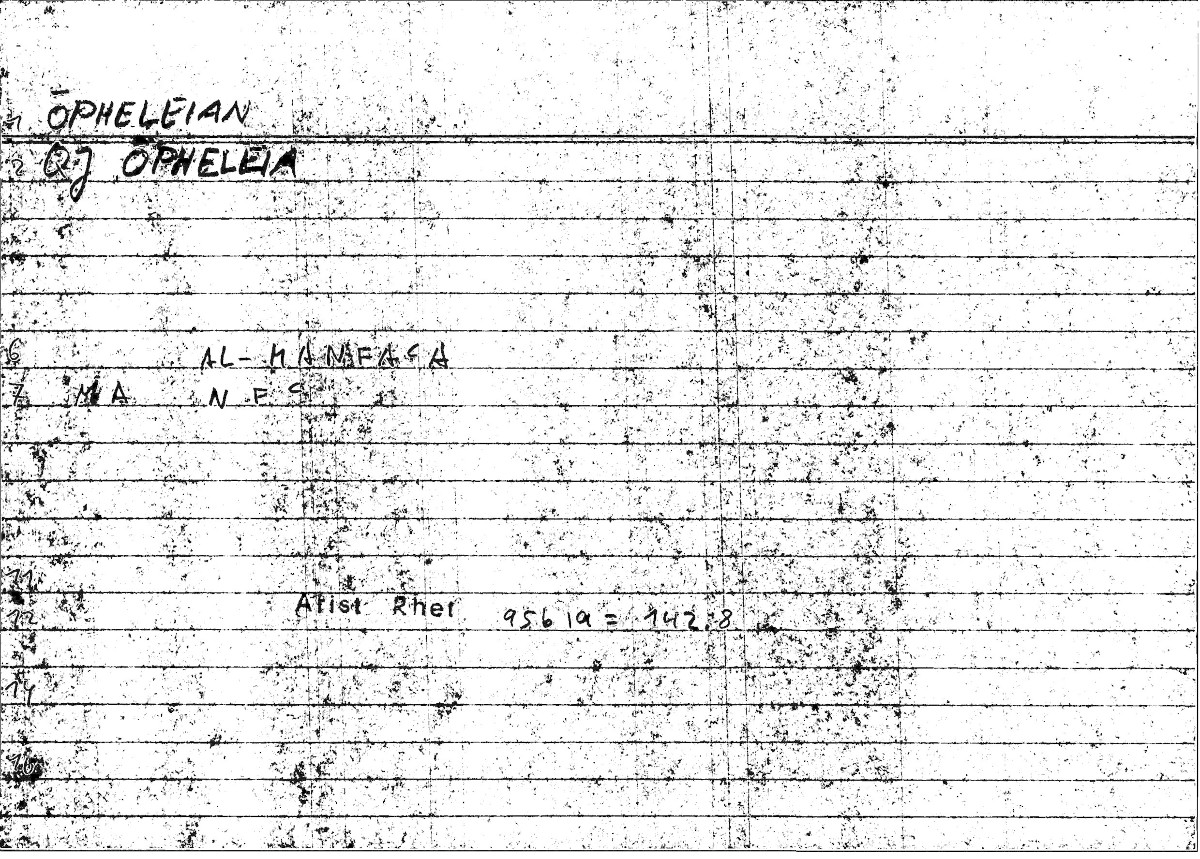 1 ŌPHELEIAN
2 QJ ŌPHELEIA
6 AL-MANFAʕA
7 MA NFʕ
11
12 Arist Rhet 956 1a = 142:8
14
16